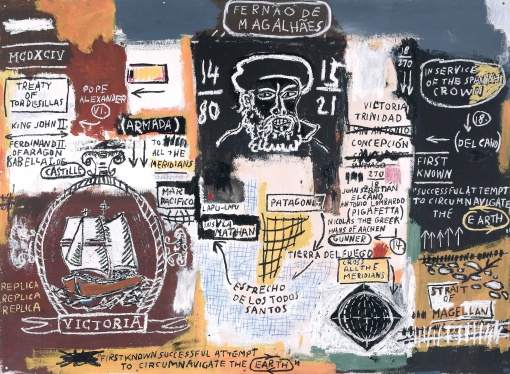 FERNÃO DE
MAGALHÃES
MCDXCIV
TREATY
OF
TORDESILLAS
POPE
ALEXANDER
VI.
KING JOHN II
FERDINAND II
OF ARAGON
ISABELLA I DE
CASTILLE
(ARMADA)
TO
ALL THE
MERIDIANS
MAR
PACIFICO
14
80
15
21
18
270
VICTORIA
TRINIDAD
SAN ANTONIO
CONCEPCIÓN
SANTIAGO
270
JUAN SEBASTIAN
ELCANO
ANTONIO LOMBARDO
(PIGAFETTA)
NICOLAS THE GREEK
HANS OF AACHEN
GUNNER
14
IN SERVICE
OF THE SPANISH
CROWN
18
(DEL CANO)
FIRST
KNOWN
"SUCCESSFUL ATTEMPT
TO CIRCUMNAVIGATE
THE
EARTH
LAPU-LAPU
MATHAN
PATAGONI
TIERRA DEL FUEGO
CROSS
ALL THE
MERIDIANS
ESTRECHO
DE LOS TODOS
SANTOS
STRAIT
OF
MAGELLAN
REPLICA
REPLICA
REPLICA
VICTORIA
"FIRST KNOWN SUCCESSFUL ATTEMPT
TO CIRCUMNAVIGATE THE EARTH